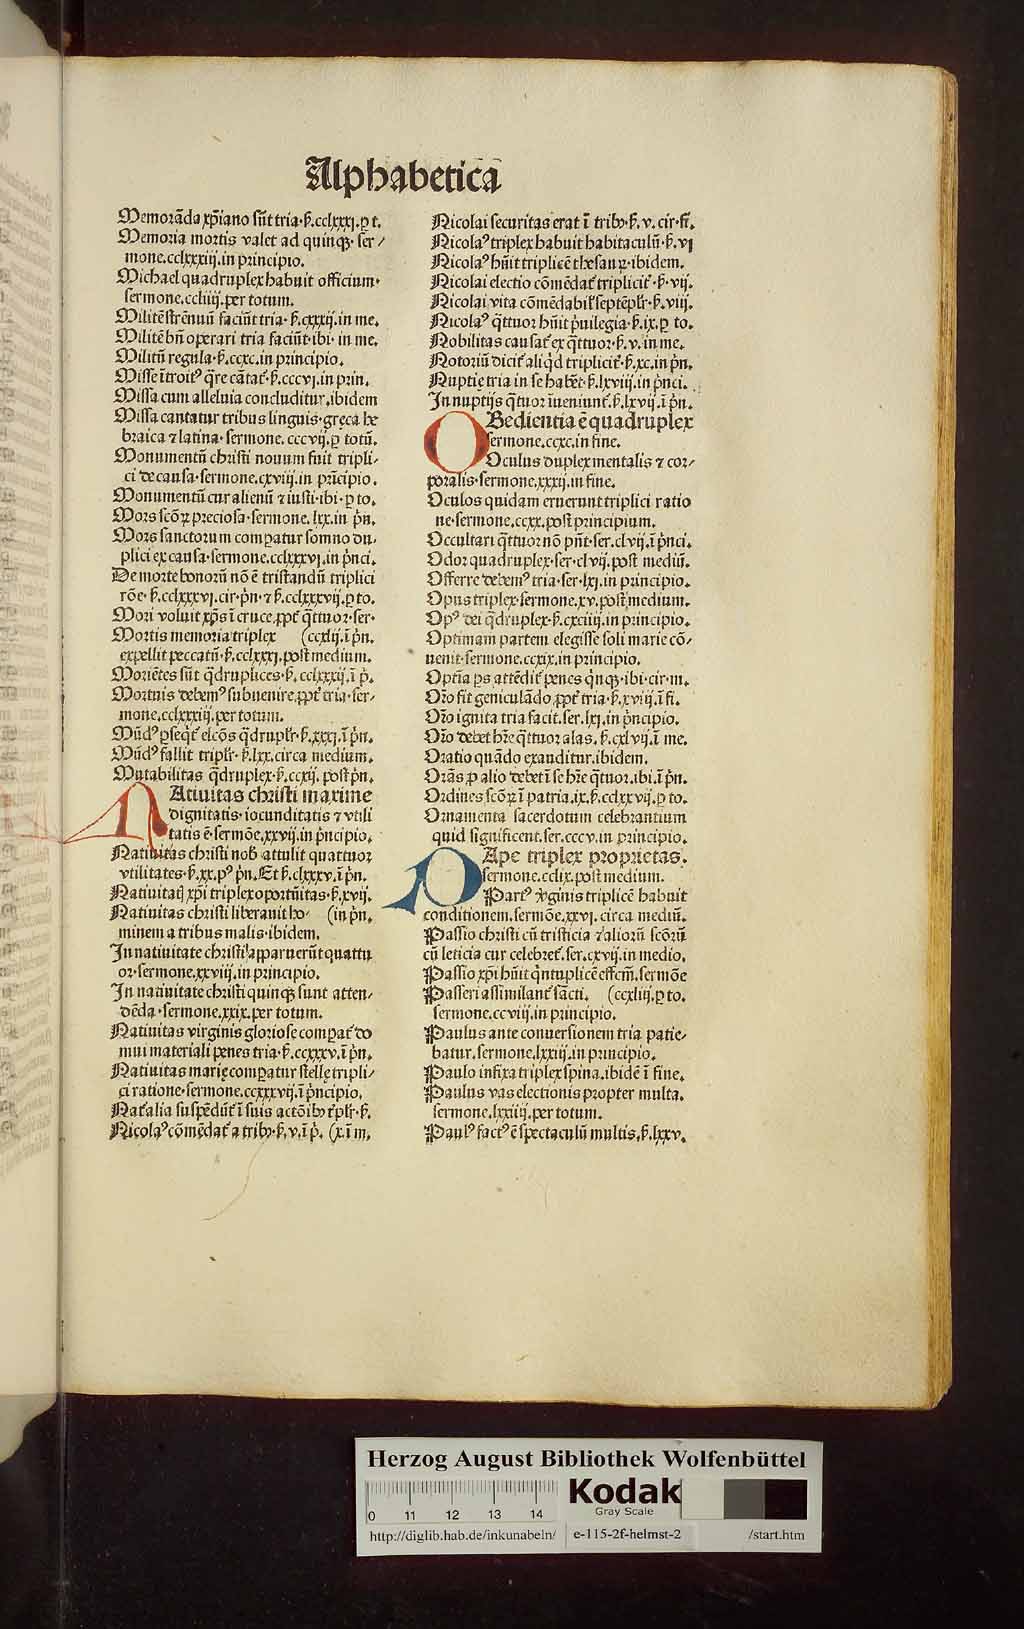 Alphabeticā
Memorāda xp̄iano sūt tria. ẜ. cclxxxj. ꝑ t.
Memoria mortis valet ad quinqꝫ. ser⸗
mone. cclxxxiij. in principio.
Michael quadruplex habuit officium.
sermone. ccliiij. per totum.
Militē strēnuū faciūt tria. ẜ. cxxxij. in me.
Militē bn̄ operari tria faciūt. ibi. in me.
Militū regula. ẜ. ccxc. in principio.
Misse ītroitꝰ q̄re cātat̄. ẜ. cccvj. in prin.
Missa cum alleluia concluditur. ibidem
Missa cantatur tribus linguis. gręca he
braica ⁊ latina. sermone. cccvij. ꝑ totū.
Monumentū christi nouum fuit tripli⸗
ci de causa. sermone. cxviij. in prīcipio.
Monumentū cur alienū ⁊ iusti. ibi. ꝑ to.
Mors scōꝝ preciosa. sermone. lxx. in p̄n.
Mors sanctorum comꝑatur somno du⸗
plici ex causa. sermone. cclxxxvj. in p̄nci.
De morte bonorū nō ē tristandū triplici
rōe. ẜ. cclxxxvj. cir. p̄n. ⁊ ẜ. cclxxxvij. ꝑ to.
Mori voluit xp̄s ī cruce. ꝓpt̄ q̄ttuor. ser.
Mortis memoria triplex (ccxlij. ī p̄n.
expellit peccatū. ẜ. cclxxxj. post medium.
Moriētes sūt q̄druplices. ẜ. cclxxxij. ī p̄.
Mortuis debemꝰ subuenire. ꝓpt̄ tria. ser⸗
mone. cclxxxiij. per totum.
Mūdꝰ ꝑseqt̄ elcōs q̄druplr̄. ẜ. xxxj. ī p̄n.
Mūdꝰ fallit triplr̄. ẜ. lxx. circa medium.
Mutabilitas q̄druplex. ẜ. ccxij. post p̄n.
NAtiuitas christi maxime
dignitatis. iocunditatis ⁊ vtili
tatis ē. sermōe. xxvij. in p̄ncipio.
Natiuitas christi nob̄ attulit quattuor
vtilitates. ẜ. xx. pꝰ p̄n. Et ẜ. clxxxv. ī p̄n.
Natiuitatꝭ xp̄i triplex oportūitas. ẜ. xvij.
Natiuitas christi liberauit ho⸗ (in p̄n.
minem a tribus malis. ibidem.
In natiuitate christi apparuerūt quattu
or. sermone. xxviij. in principio.
In natiuitate christi quinqꝫ sunt atten⸗
dēda. sermone. xxix. per totum.
Natiuitas virginis gloriose comꝑat̄ do
mui materiali penes tria. ẜ. ccxxxv. ī p̄n.
Natiuitas marię comꝑatur stellę tripli⸗
ci ratione. sermone. ccxxxvij. ī p̄ncipio.
Nat̄alia suspēdūt̄ ī suis actōibꝫ t̄plr̄. ẜ.
Nicolaꝰ cōmēdat̄ a tribꝫ. ẜ. v. ī p̄. (x. ī m.
Nicolai securitas erat ī tribꝫ. ẜ. v. cir. fī.
Nicolaꝰ triplex habuit habitaculū. ẜ. vj
Nicolaꝰ hūit triplicē thesauꝝ. ibidem.
Nicolai electio cōmēdat̄ triplicit̄. ẜ. vij.
Nicolai vita cōmēdabil̄ septēplr̄. ẜ. viij.
Nicolaꝰ q̄ttuor hūit p̄uilegia. ẜ. ix. ꝑ to.
Nobilitas causat̄ ex q̄ttuor. ẜ. v. in me.
Notoriū dicit̄ aliq̄d triplicit̄. ẜ. xc. in p̄n.
Nuptię tria in se habēt. ẜ. lxviij. in p̄nci.
In nuptijs q̄ttuor īueniunt̄. ẜ. lxvij. ī p̄n.
OBedientia ē quadruplex
sermone. ccxc. in fine.
Oculus duplex mentalis ⁊ cor⸗
poralis. sermone. xxxij. in fine.
Oculos quidam eruerunt triplici ratio
ne. sermone. ccxx. post principium.
Occultari q̄ttuor nō pn̄t. ser. clvij. ī p̄nci.
Odor quadruplex. ser. clvij. post mediū.
Offerre debemꝰ tria. ser. lxj. in principio.
Opus triplex. sermone. xv. post medium.
Opꝰ dei q̄druplex. ẜ. cxciiij. in principio.
Optimam partem elegisse soli marie cō⸗
uenit. sermone. ccxix. in principio.
Optīa ꝑs attēdit̄ penes q̄nqꝫ. ibi. cir. m.
Orō fit geniculādo ꝓpt̄ tria. ẜ. xviij. ī fi.
Orō ignita tria facit. ser. lxj. in p̄ncipio.
Orō debet hr̄e q̄ttuor alas. ẜ. cxlvij. ī me.
Oratio quādo exauditur. ibidem.
Orās ꝓ alio debet ī se hr̄e q̄tuor. ibi. ī p̄n.
Ordines scōꝝ ī patria. ix. ẜ. cclxxvij. ꝑ to.
Ornamenta sacerdotum celebrantium
quid significent. ser. cccv. in principio.
PApe triplex proprietas.
sermone. cclix. post medium.
Partꝰ v̄ginis triplicē habuit
conditionem. sermōe. xxvj. circa mediū.
Passio christi cū tristicia ⁊ aliorū scōrū
cū leticia cur celebret̄. ser. cxvij. in medio.
Passio xp̄i hūit q̄ntuplicē effcm̄. sermōe
Passeri assimilant̄ sācti. (ccxliij. ꝑ to.
sermone. ccviij. in principio.
Paulus ante conuersionem tria patie⸗
batur. sermone. lxxiij. in principio.
Paulo infixa triplex spina. ibidē ī fine.
Paulus vas electionis propter multa.
sermone. lxxiiij. per totum.
Paulꝰ factꝰ ē spectaculū multis. ẜ. lxxv.
Herzog August Bibliothek Wolfenbüttel
0 11 12 13 14
Kodak
Gray Scale
http://diglib.hab.de/inkunabeln/ e-115-2f-helmst-2 /start.htm